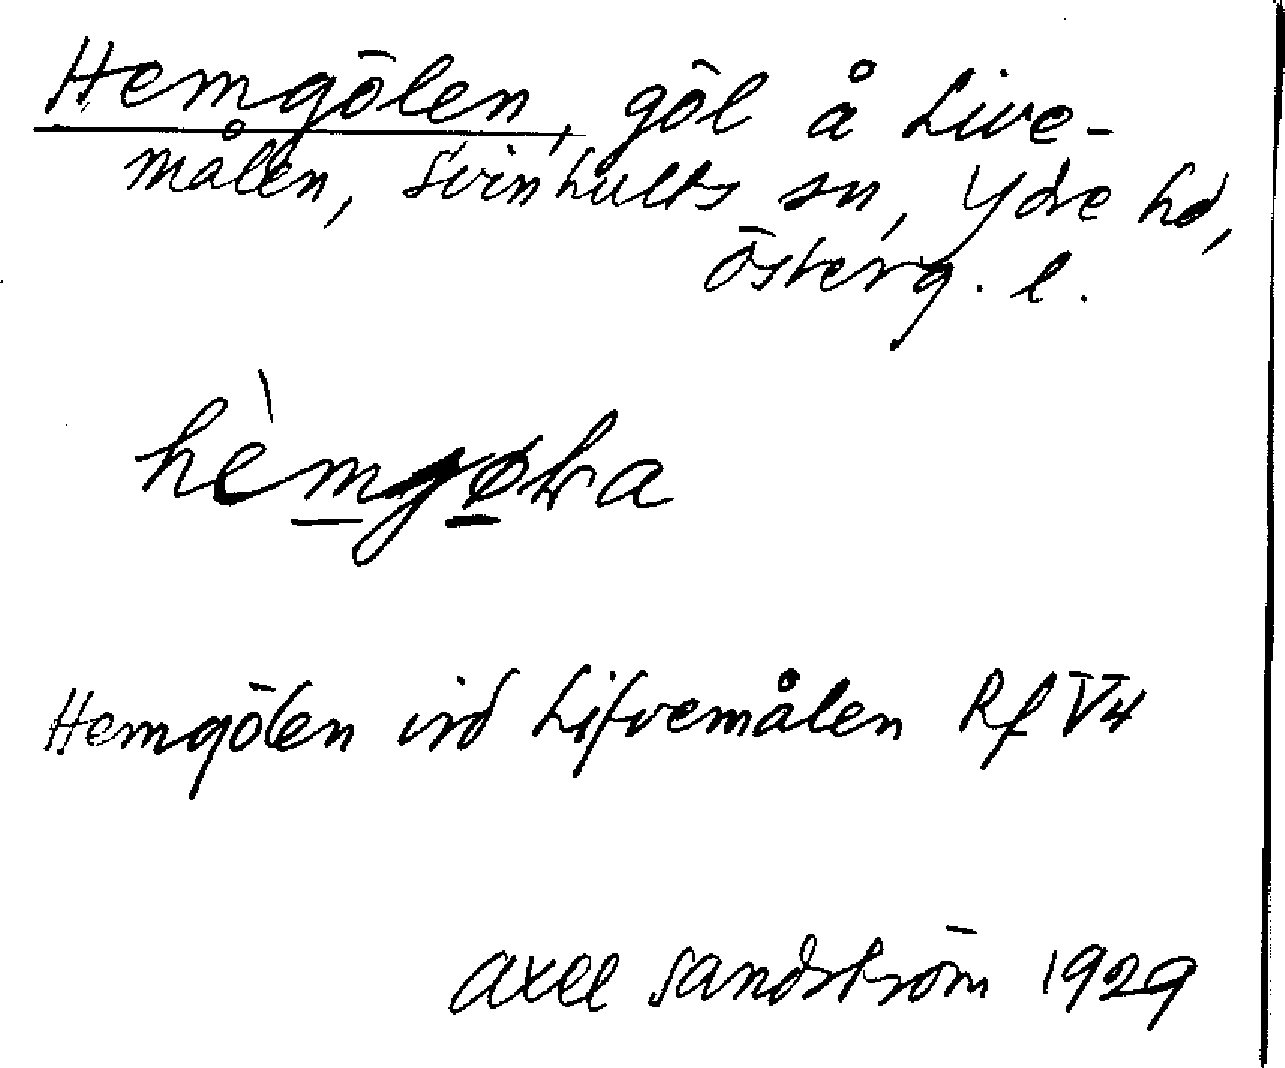 Hemgölen, göl å Live-
målen, Svinhults sn, Ydre hd,
Österg. l.
Hemgölen vid Lifvemålen Rf V4
Axel Sandström 1929